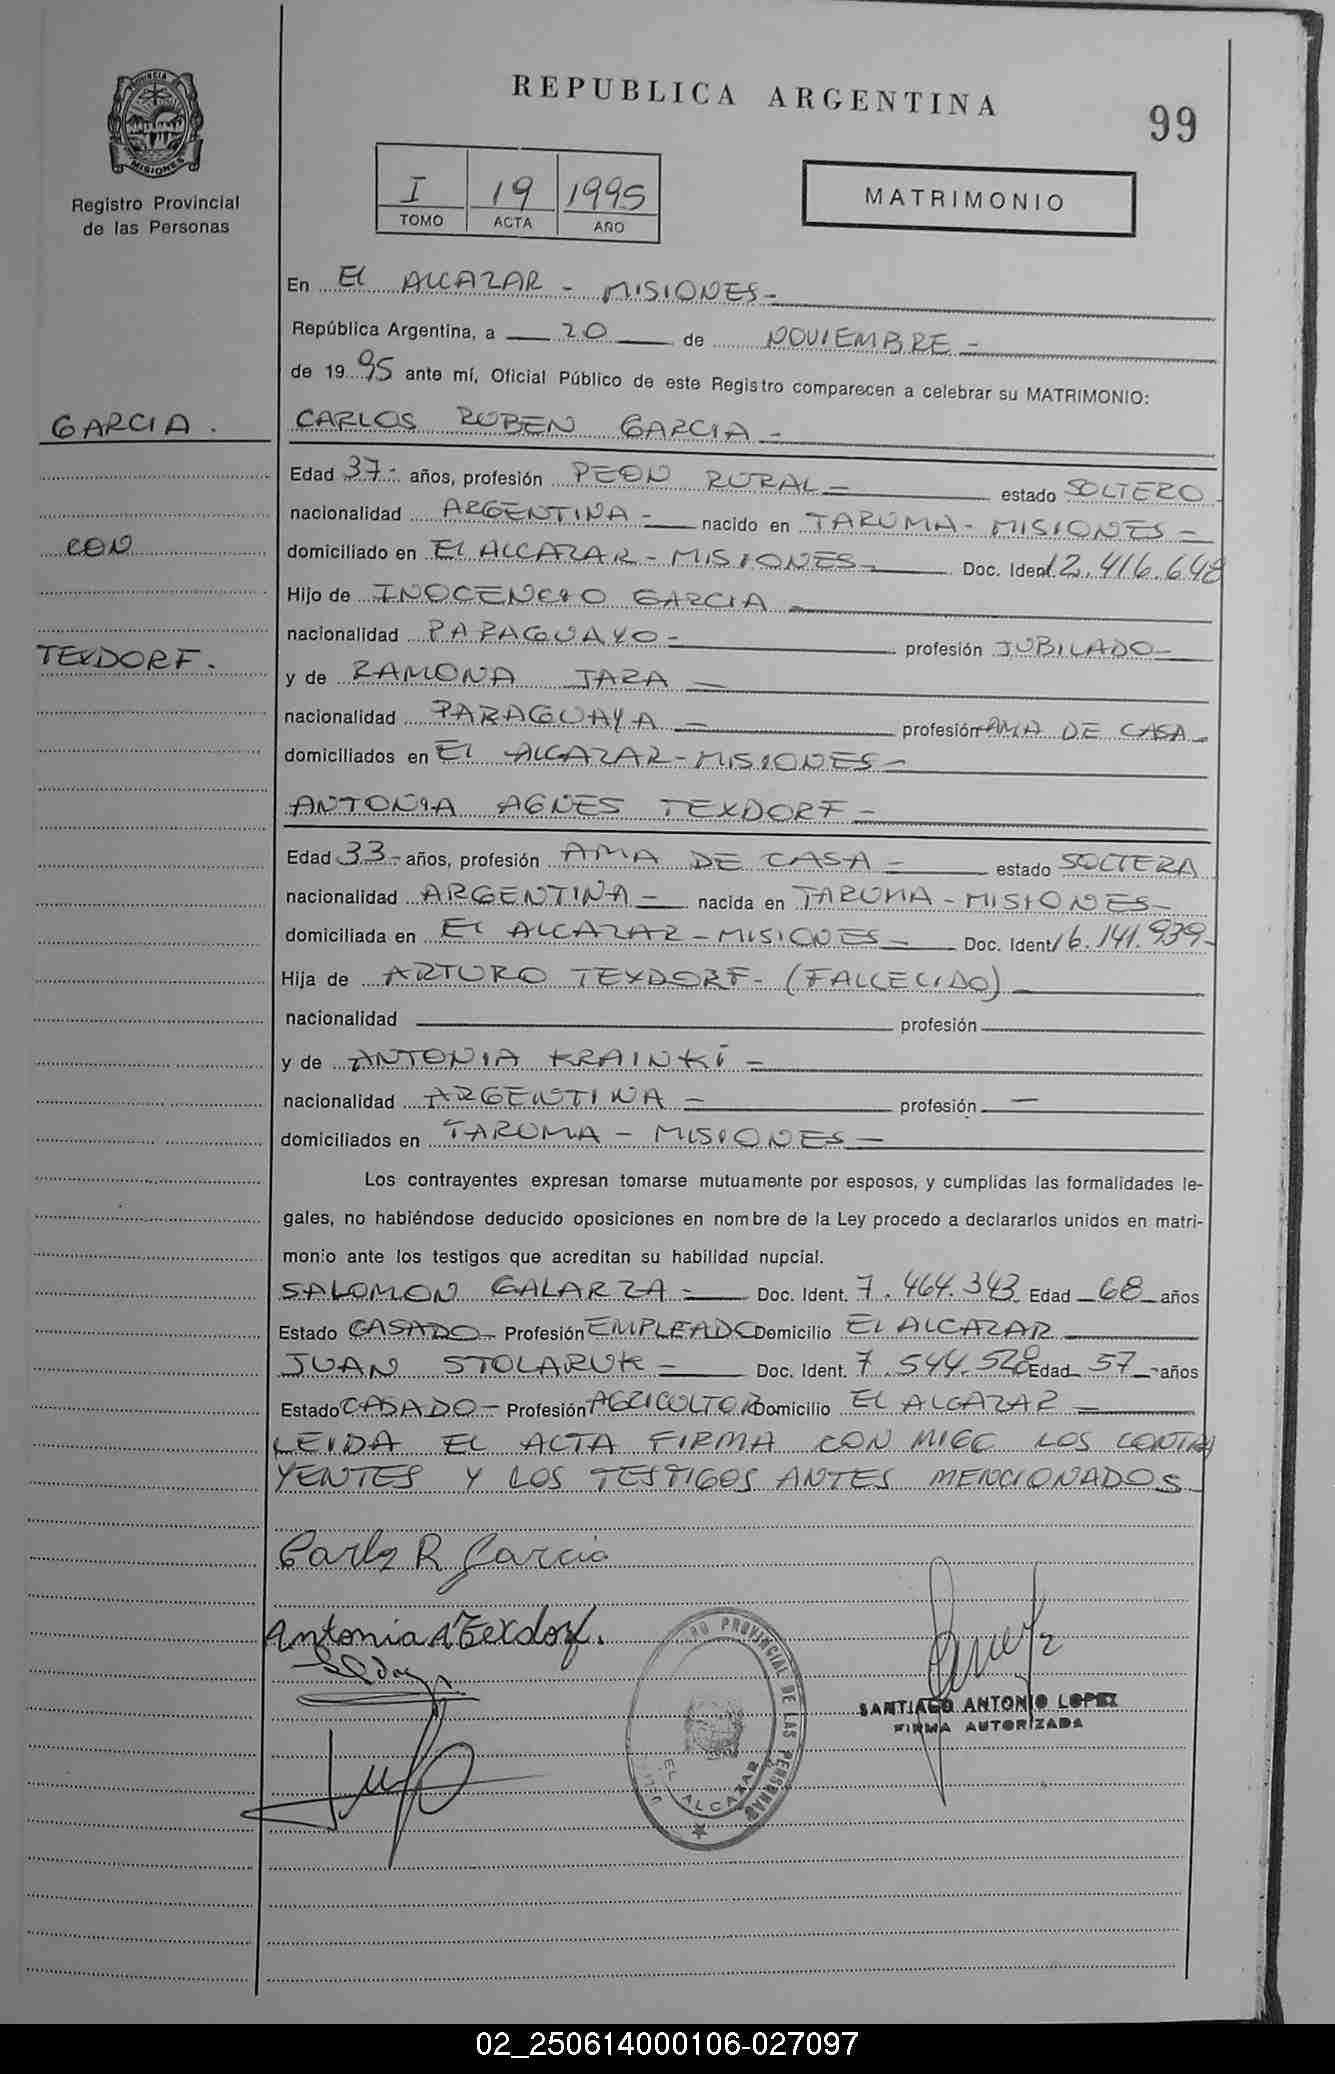 PROVINCIA DE
MISIONES
Registro Provincial
de las Personas
REPUBLICA ARGENTINA
99
I 19 1995
TOMO ACTA AÑO
MATRIMONIO
En EL ALCAZAR - MISIONES -
República Argentina, a 20 de NOVIEMBRE -
de 19 95 ante mí, Oficial Público de este Registro comparecen a celebrar su MATRIMONIO:
GARCIA .
CON
TEXDORF .
CARLOS RUBEN GARCIA -
Edad 37- años, profesión PEON RURAL - estado SOLTERO
nacionalidad ARGENTINA - nacido en TARUMA - MISIONES -
domiciliado en EL ALCAZAR - MISIONES - Doc. Ident. 12.416.648
Hijo de INOCENCIO GARCIA -
nacionalidad PARAGUAYO - profesión JUBILADO -
y de RAMONA JARA -
nacionalidad PARAGUAYA - profesión AMA DE CASA -
domiciliados en EL ALCAZAR - MISIONES -
ANTONIA AGNES TEXDORF -
Edad 33- años, profesión AMA DE CASA - estado SOLTERA
nacionalidad ARGENTINA - nacida en TARUMA - MISIONES -
domiciliada en EL ALCAZAR - MISIONES - Doc. Ident 16.141.939-
Hija de ARTURO TEXDORF - (FALLECIDO)
nacionalidad profesión
y de ANTONIA KRAINKI -
nacionalidad ARGENTINA - profesión -
domiciliados en TARUMA - MISIONES -
Los contrayentes expresan tomarse mutuamente por esposos, y cumplidas las formalidades le-
gales, no habiéndose deducido oposiciones en nombre de la Ley procedo a declararlos unidos en matri-
monio ante los testigos que acreditan su habilidad nupcial.
SALOMON GALARZA - Doc. Ident. 7.464.343 Edad 68 años
Estado CASADO - Profesión EMPLEADO Domicilio EL ALCAZAR
JUAN STOLARUK - Doc. Ident. 7.544.528 Edad 57 - años
Estado CASADO - Profesión AGRICULTOR Domicilio EL ALCAZAR -
LEIDA EL ACTA FIRMA CON MIGO LOS CONTRA
YENTES Y LOS TESTIGOS ANTES MENCIONADOS
Carlos R Garcia
Antonia A Texdorf.
PROVINCIAL DE LAS PERSONAS
EL ALCAZAR
SANTIAGO ANTONIO LOPEZ
FIRMA AUTORIZADA
02_250614000106-027097